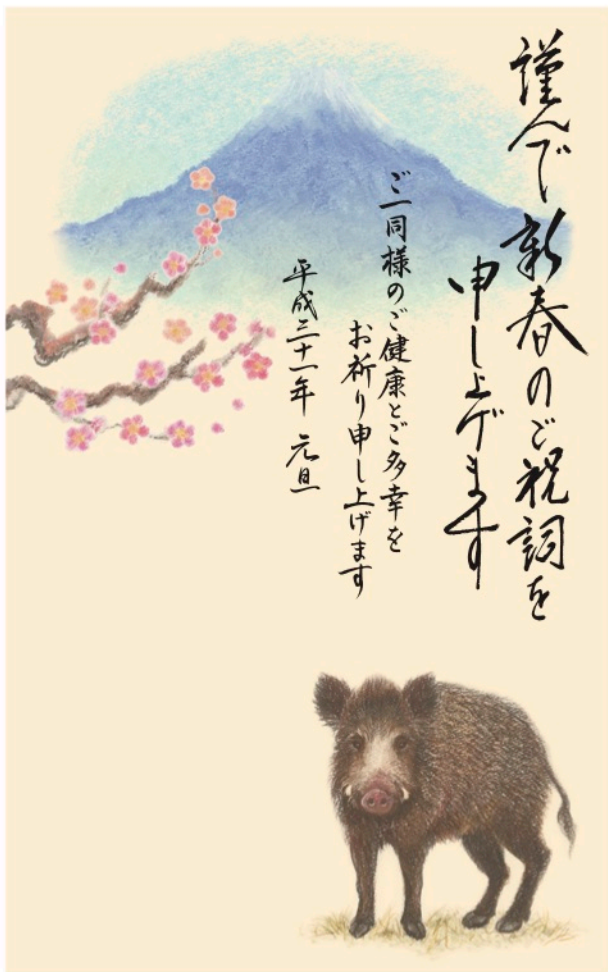 謹んで新春のご祝詞を
申し上げます
ご一同様のご健康とご多幸を
お祈り申し上げます
平成三十一年 元旦